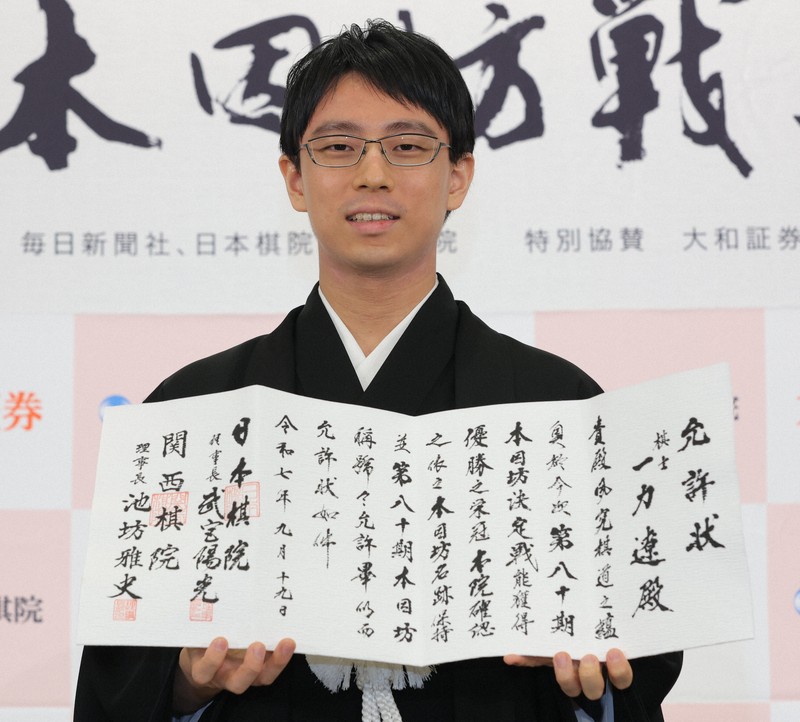 本因坊戦
毎日新聞社、日本棋院
院
特別協賛 大和証券
券
棋院
院
允許状
棋士 一力遼殿
貴殿夙究棋道之蘊
奥於今次第八十期
本因坊決定戦能獲得
優勝之栄冠本院確認
之依之本因坊名跡保持
並第八十期本因坊
称号令允許畢仍而
允許状如件
令和七年九月十九日
日本棋院
理事長 武宮陽光
関西棋院
理事長 池坊雅史